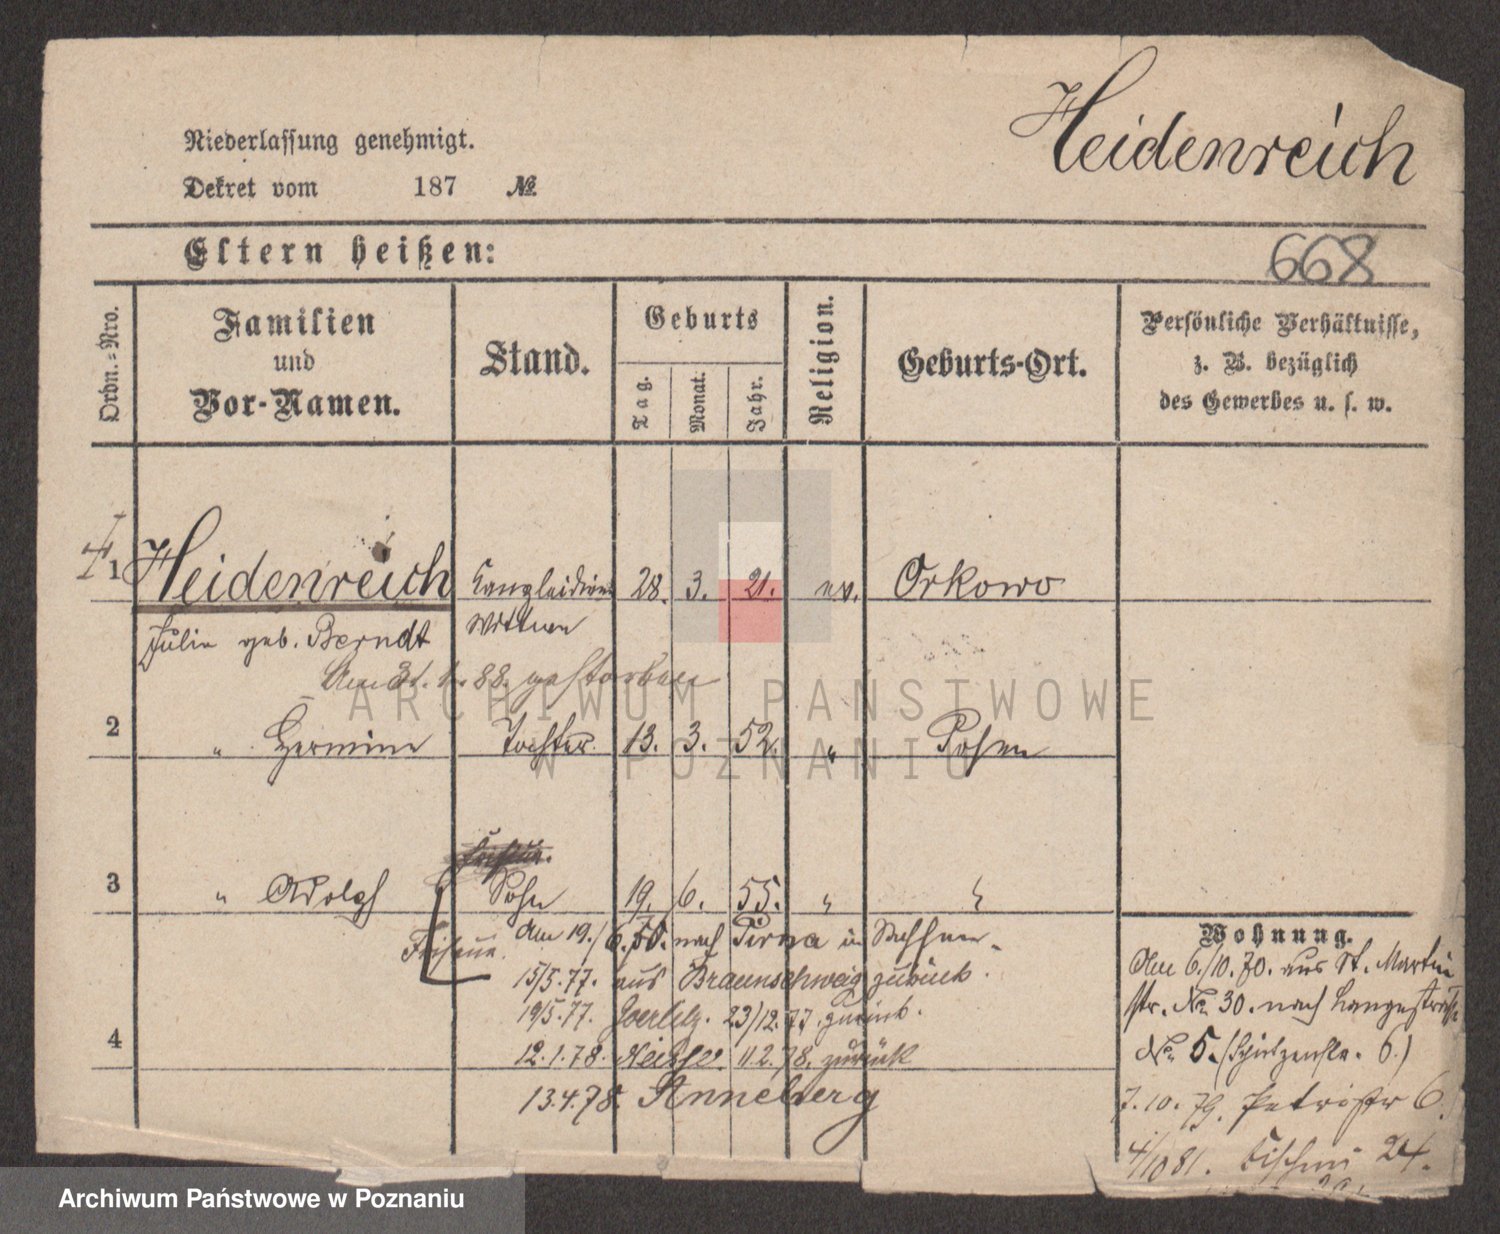 Heidenreich
Niederlassung genehmigt.
Dekret vom 187 №
Eltern heißen:
668
Ordn.-Nro.
Familien
und
Vor-Namen.
Stand.
Geburts
Tag.
Monat.
Jahr.
Religion.
Geburts-Ort.
Persönliche Verhältnisse,
z. B. bezüglich
des Gewerbes u. s. w.
1 Heidenreich Kanzleidien 28. 3. 21. ev. Orkowo
Julie geb. Berndt Wittwe
Am 31. 1. 88. gestorben
2 " Hermine Tochter. 13. 3. 52. " Posen
3 " Adolph Sohn 19. 6. 55. " "
Friseur. Am 19./6. nach Pirna in Sachsen.
15/5.77. aus Braunschweig zurück.
19/5.77. Goerlitz. 23/12.77 zurück.
4 12.1.78. Neisse. 11.2.78. zurück
13.4.78. Anneberg
Wohnung.
Am 6./10.70. aus St. Martin
str. No 30. nach Langestraße
No 5.
7.10.79. Petristr 6.
4/10 81. 24.
ARCHIWUM PAŃSTWOWE
W POZNANIU
Archiwum Państwowe w Poznaniu